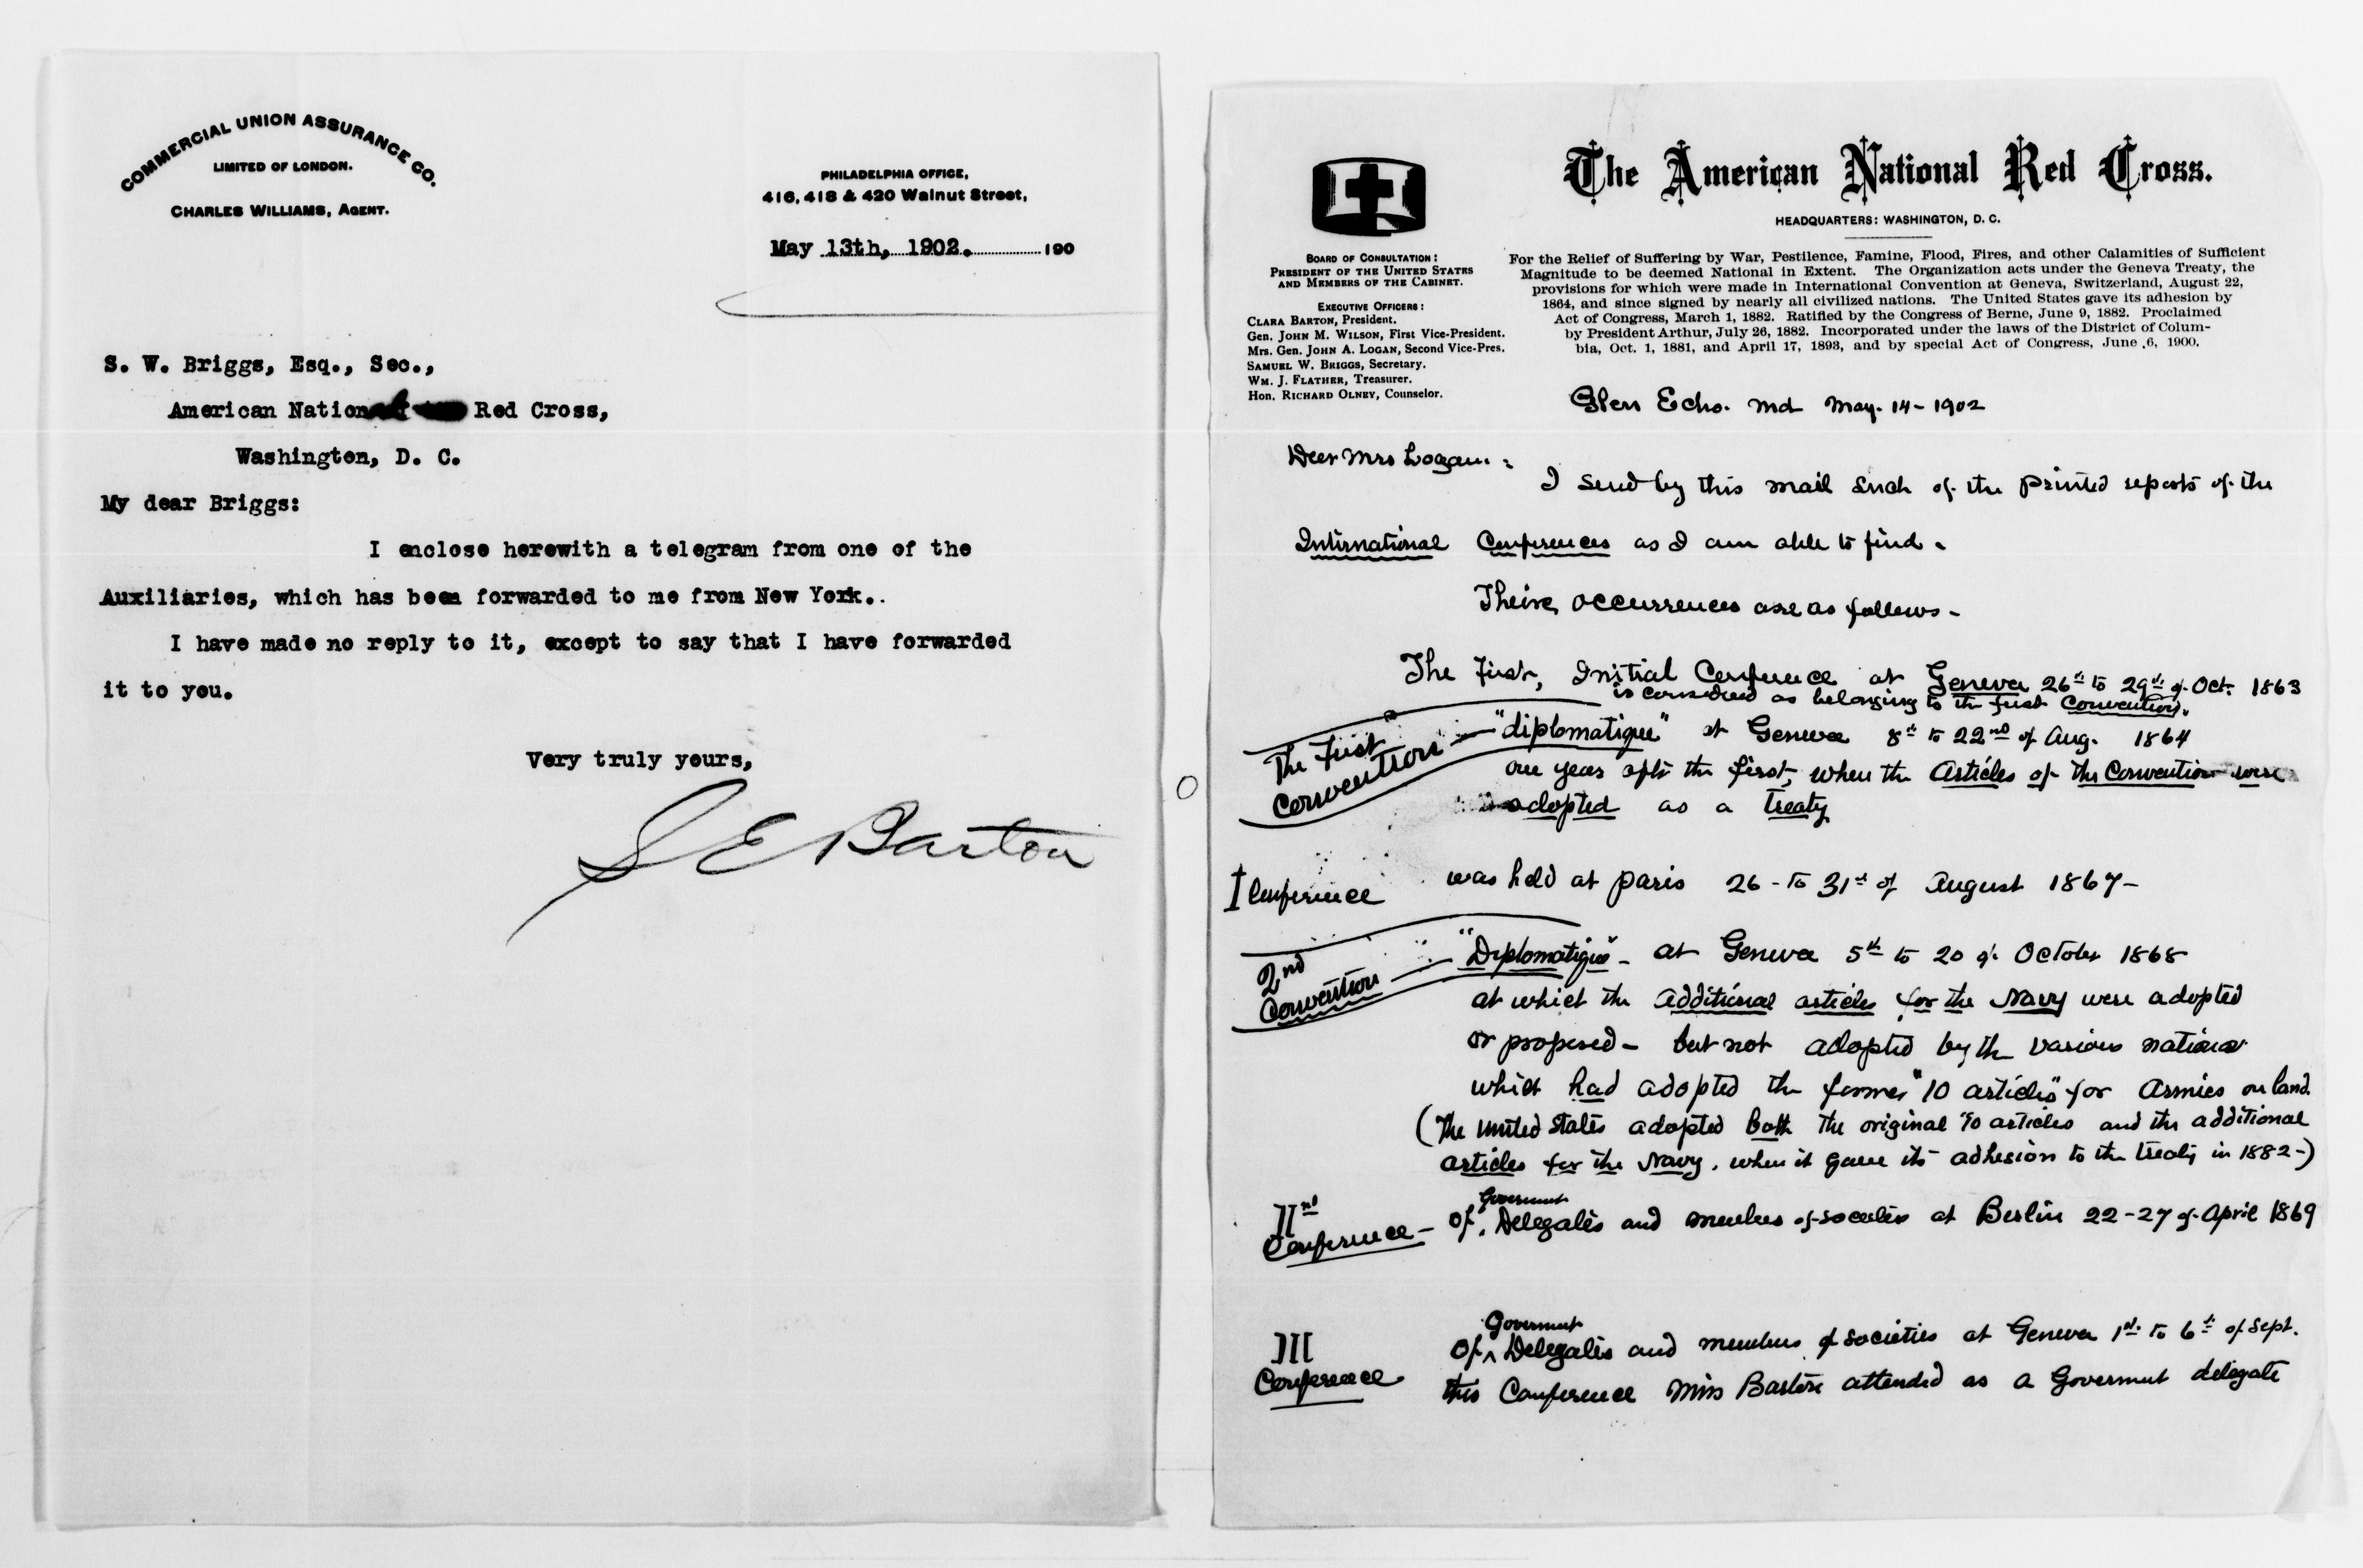 COMMERCIAL UNION ASSURANCE CO.
LIMITED OF LONDON.
CHARLES WILLIAMS, AGENT.
PHILADELPHIA OFFICE,
416, 418 & 420 Walnut Street,
May 13th, 1902. 190
S. W. Briggs, Esq., Sec.,
American National Red Cross,
Washington, D. C.
My dear Briggs:
I enclose herewith a telegram from one of the
Auxiliaries, which has been forwarded to me from New York..
I have made no reply to it, except to say that I have forwarded
it to you.
Very truly yours,
S E Barton
The American National Red Cross.
HEADQUARTERS: WASHINGTON, D. C.
BOARD OF CONSULTATION:
PRESIDENT OF THE UNITED STATES
AND MEMBERS OF THE CABINET.
EXECUTIVE OFFICERS:
CLARA BARTON, President.
Gen. JOHN M. WILSON, First Vice-President.
Mrs. Gen. JOHN A. LOGAN, Second Vice-Pres.
SAMUEL W. BRIGGS, Secretary.
WM. J. FLATHER, Treasurer.
Hon. RICHARD OLNEY, Counselor.
For the Relief of Suffering by War, Pestilence, Famine, Flood, Fires, and other Calamities of Sufficient
Magnitude to be deemed National in Extent. The Organization acts under the Geneva Treaty, the
provisions for which were made in International Convention at Geneva, Switzerland, August 22,
1864, and since signed by nearly all civilized nations. The United States gave its adhesion by
Act of Congress, March 1, 1882. Ratified by the Congress of Berne, June 9, 1882. Proclaimed
by President Arthur, July 26, 1882. Incorporated under the laws of the District of Colum-
bia, Oct. 1, 1881, and April 17, 1893, and by special Act of Congress, June 6, 1900.
Glen Echo. Md May. 14 - 1902
Dear Mrs Logan:
I send by this mail such of the printed reports of the
International Conferences as I am able to find -
Their occurrences are as follows -
The First, Initial Conference at Geneva 26th to 29th of Oct. 1863
is considered as belonging to the first Convention.
The First Convention - "diplomatique" at Geneva 8th to 22nd of Aug. 1864
one year aft the first, when the Articles of the Convention were
adopted as a Treaty
I Conference was held at Paris 26 - to 31st of August 1867 -
2nd Convention - "Diplomatique" - at Geneva 5th to 20 of October 1868
at which the additional articles for the Navy were adopted
or proposed - but not adopted by the various nations
which had adopted the former "10 articles" for Armies on land.
(The United States adopted both the original 10 articles and the additional
articles for the Navy, when it gave its adhesion to the treaty in 1882 -)
IInd Conference - of Government Delegates and members of societies at Berlin 22 - 27 of April 1869
III Conference Of Government Delegates and members of societies at Geneva 1st to 6th of Sept.
this Conference Miss Barton attended as a Goverment delegate